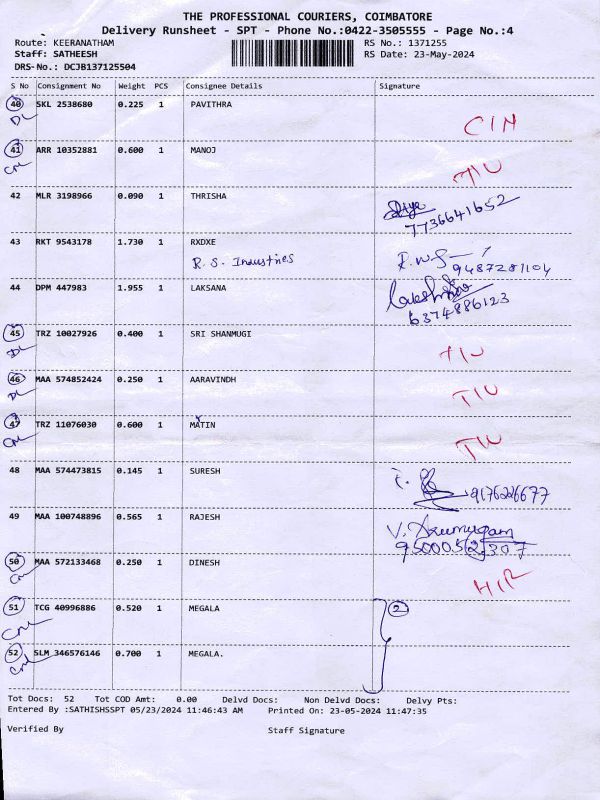 THE PROFESSIONAL COURIERS, COIMBATORE
Delivery Runsheet - SPT - Phone No.:0422-3505555 - Page No.:4
Route: KEERANATHAM
RS No.: 1371255
Staff: SATHEESH
RS Date: 23-May-2024
DRS-No.: DCJB137125504
S No Consignment No Weight PCS Consignee Details Signature
40 SKL 2538680 0.225 1 PAVITHRA
DL
CIN
41 ARR 10352881 0.600 1 MANOJ
TIU
42 MLR 3198966 0.090 1 THRISHA
7736641652
43 RKT 9543178 1.730 1 RXDXE
R. S. Industries
9487281104
44 DPM 447983 1.955 1 LAKSANA
6374886123
45 TRZ 10027926 0.400 1 SRI SHANMUGI
DL
TIU
46 MAA 574852424 0.250 1 AARAVINDH
DL
TIU
47 TRZ 11076030 0.600 1 MATIN
TIU
48 MAA 574473815 0.145 1 SURESH
9176226677
49 MAA 100748896 0.565 1 RAJESH
V. Arumugam
9500052307
50 MAA 572133468 0.250 1 DINESH
51 TCG 40996886 0.520 1 MEGALA
2
52 SLM 346576146 0.700 1 MEGALA.
Tot Docs: 52 Tot COD Amt: 0.00 Delvd Docs: Non Delvd Docs: Delvy Pts:
Entered By :SATHISHSSPT 05/23/2024 11:46:43 AM Printed On: 23-05-2024 11:47:35
Verified By Staff Signature